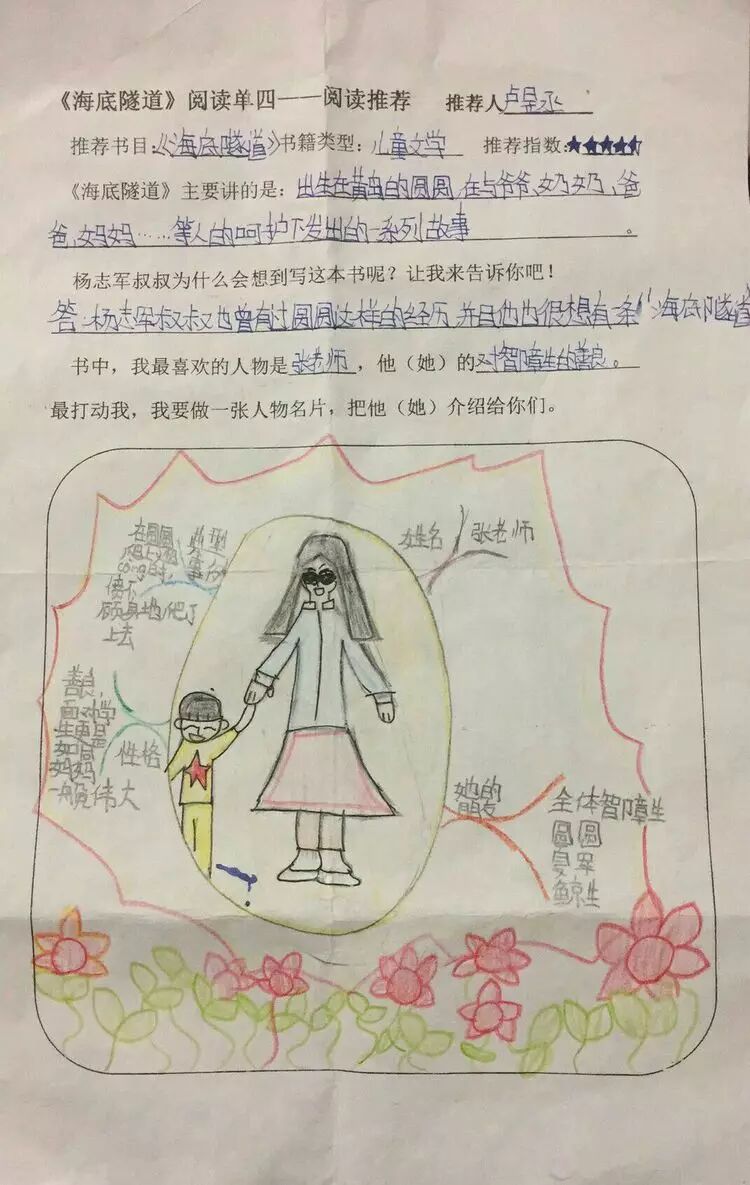 《海底隧道》阅读单四——阅读推荐 推荐人卢昱丞
推荐书目:《海底隧道》书籍类型:儿童文学 推荐指数:★★★★★
《海底隧道》主要讲的是:出生在黄岛的圆圆,在与爷爷、奶奶、爸
爸、妈妈……等人的呵护下发出的一系列故事。
杨志军叔叔为什么会想到写这本书呢?让我来告诉你吧!
答:杨志军叔叔也曾有过圆圆这样的经历,并且他也很想有一条“海底隧道
书中,我最喜欢的人物是张老师,他(她)的对智障生的善良。
最打动我,我要做一张人物名片,把他(她)介绍给你们。
姓名
张老师
典型
事例
在圆圆
cong
时,
奋不
顾身地爬了
上去
性格
善良,
面对学
生更是
如同
妈妈
一般伟大
她的
朋友
全体智障生
圆圆
鲸生